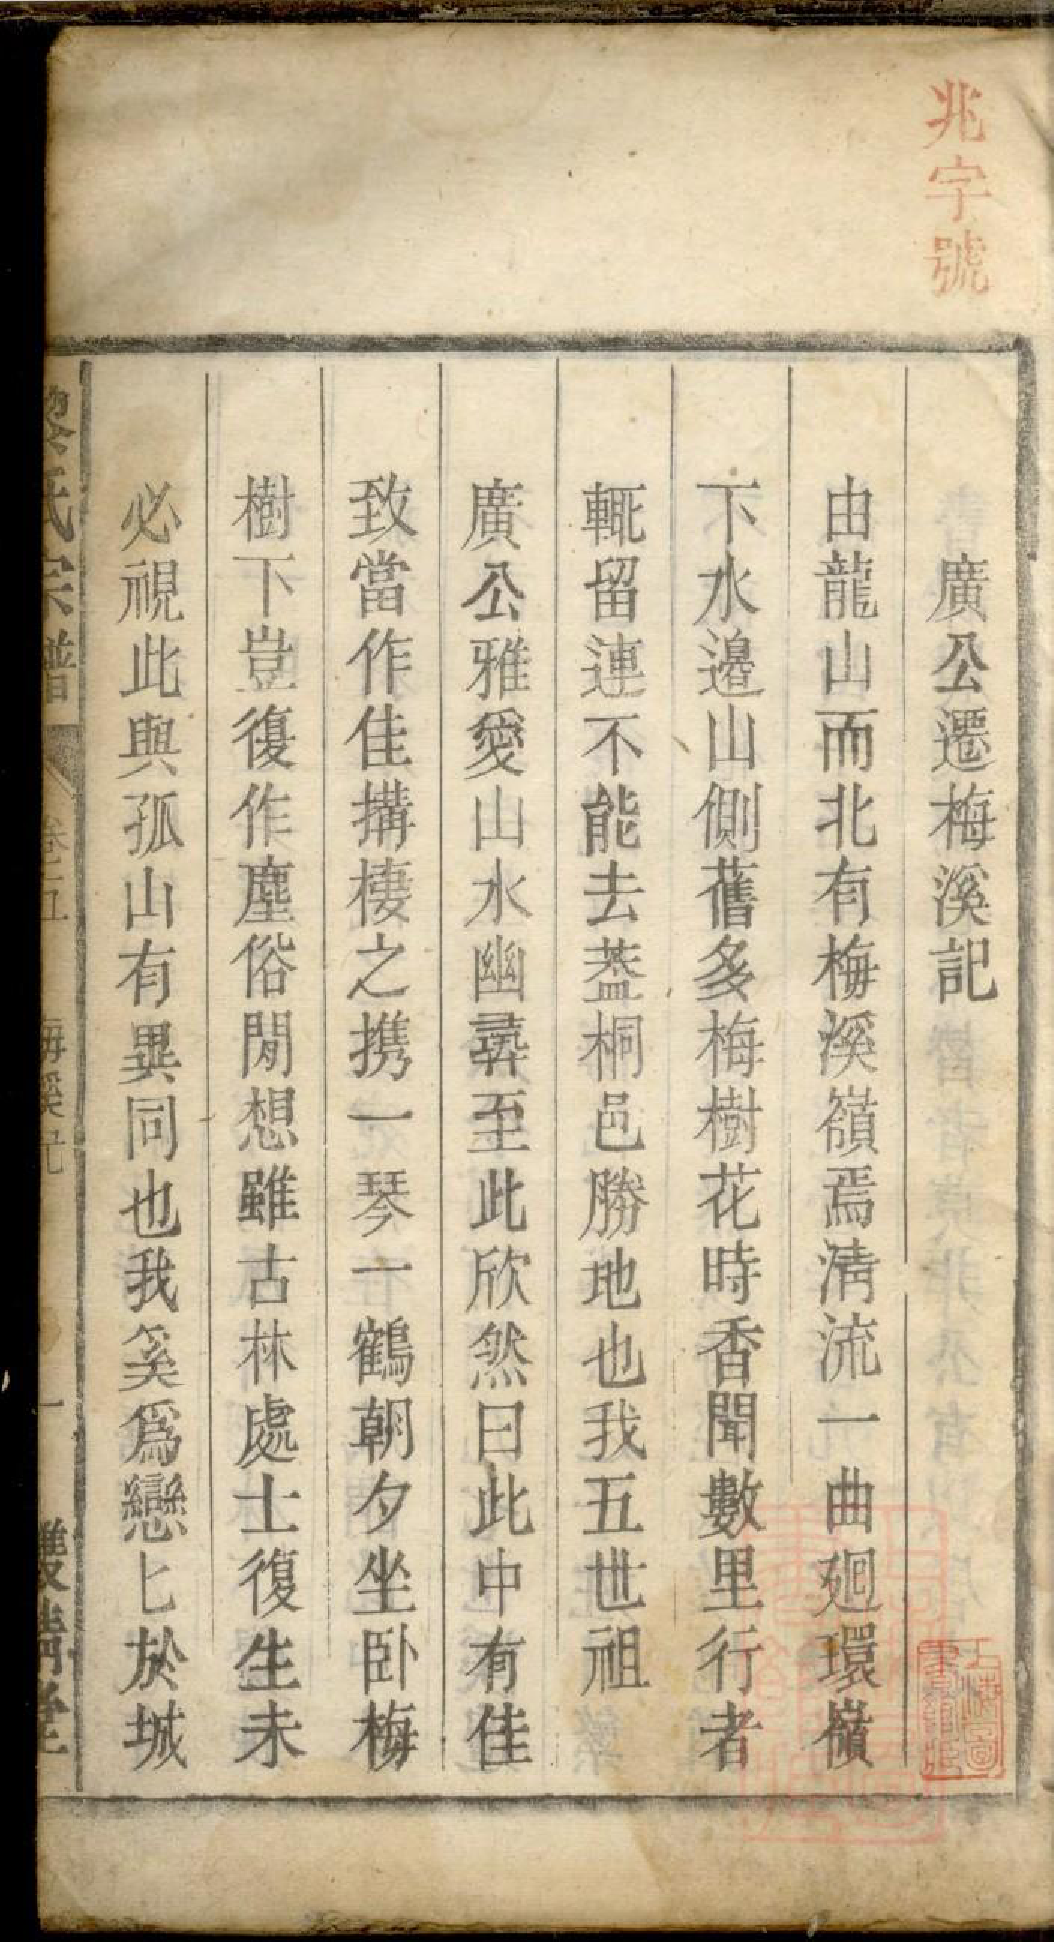 兆字號
廣公遷梅溪記
由龍山而北有梅溪嶺焉淸流一曲廻環嶺
下水邊山側舊多梅樹花時香聞數里行者
輒留連不能去葢桐邑勝地也我五世祖
廣公雅愛山水幽尋至此欣然曰此中有佳
致當作佳搆棲之携一琴一鶴朝夕坐卧梅
樹下豈復作塵俗閒想雖古林處士復生未
必視此與孤山有異同也我奚爲戀匕於城
黎氏宗譜
卷之五
梅溪記
一
雙溝堂